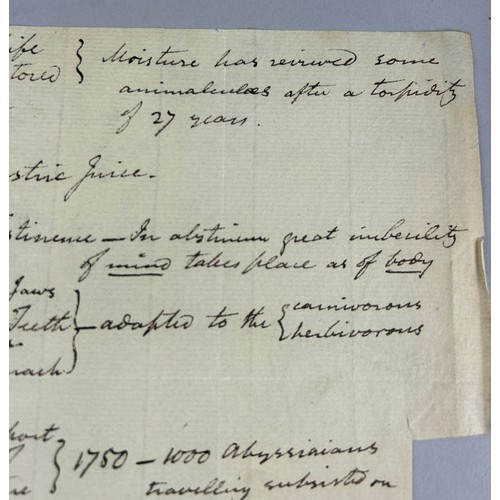 ife } Moisture has reivived some
tored animalculaes after a torpidity
of 27 years.
stric Juice.
stinence — In abstinence great imbecility
of mind takes place as of body
Jaws
Teeth } — adapted to the { carnivorous
herbivorous
mach
port
} 1750 — 1000 Abyssiaians
travelling subsisted on